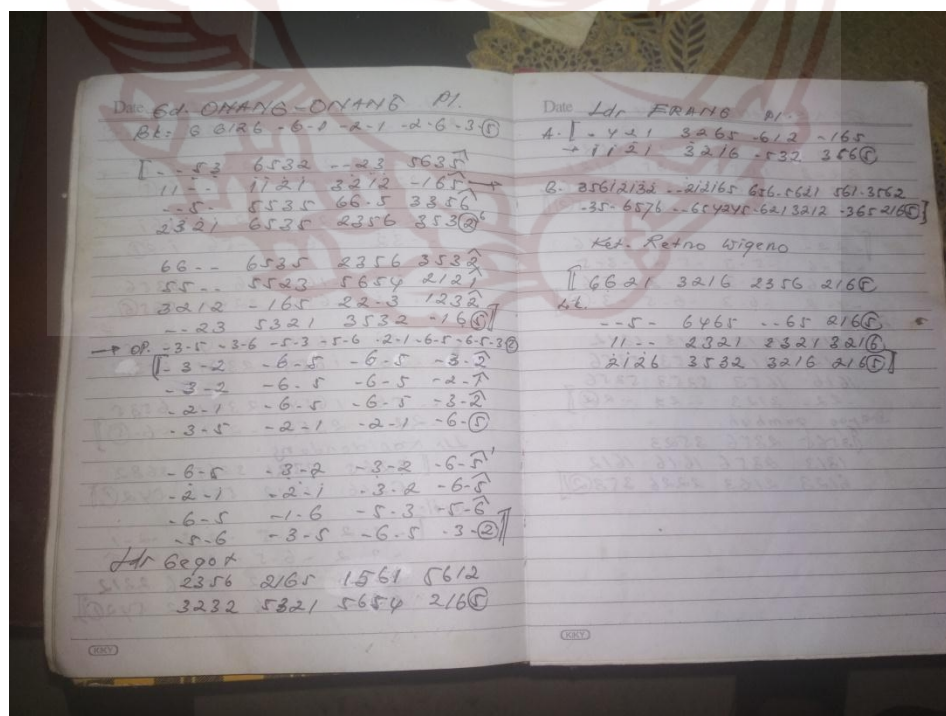 Date Gd. ONANG-ONANG Pl.
Bk: 6 6126 -6-1 -2-1 -2-6 -3-⑤
[--53 6532 --23 5635
11-- 1121 3212 -165 →
--5- 5535 66-5 3356
2321 6535 2356 353②
66-- 6535 2356 3532
55-- 5523 5654 2121
3212 -165 22-3 1232
--23 5321 3532 -16⑤]
→ OP. -3-5 -3-6 -5-3 -5-6 -2-1 -6-5 -6-5-3②
[-3-2 -6-5 -6-5 -3-2
-3-2 -6-5 -6-5 -2-1
-2-1 -6-5 -6-5 -3-2
-3-5 -2-1 -2-1 -6-⑤
-6-5 -3-2 -3-2 -6-5
-2-1 -2-1 -3-2 -6-5
-6-5 -1-6 -5-3 -5-6
-5-6 -3-5 -6-5 -3-②]
Ldr Gegot
2356 2165 1561 5612
3232 5321 5654 216⑤
KIKY
Date Ldr ERANG Pl
A. [-421 3265 -612 -165
→ 1121 3216 -532 356⑤
B. 35612132 --212165 656-5621 561-3562
-35-6576 --654245-6213212 -365216⑤]
Ket. Retno Wigeno
[6621 3216 2356 216⑤
Lik.
--5- 6465 --65 216⑤
11-- 2321 2321 321⑥
2126 3532 3216 216⑤]
KIKY